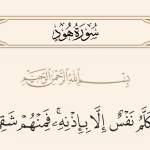 سُورَةُ هُودٍ
بِسْمِ ٱللَّهِ ٱلرَّحْمَٰنِ ٱلرَّحِيمِ
تَكَلَّمُ نَفْسٌ إِلَّا بِإِذْنِهِۦ ۚ فَمِنْهُمْ شَقِىٌّ